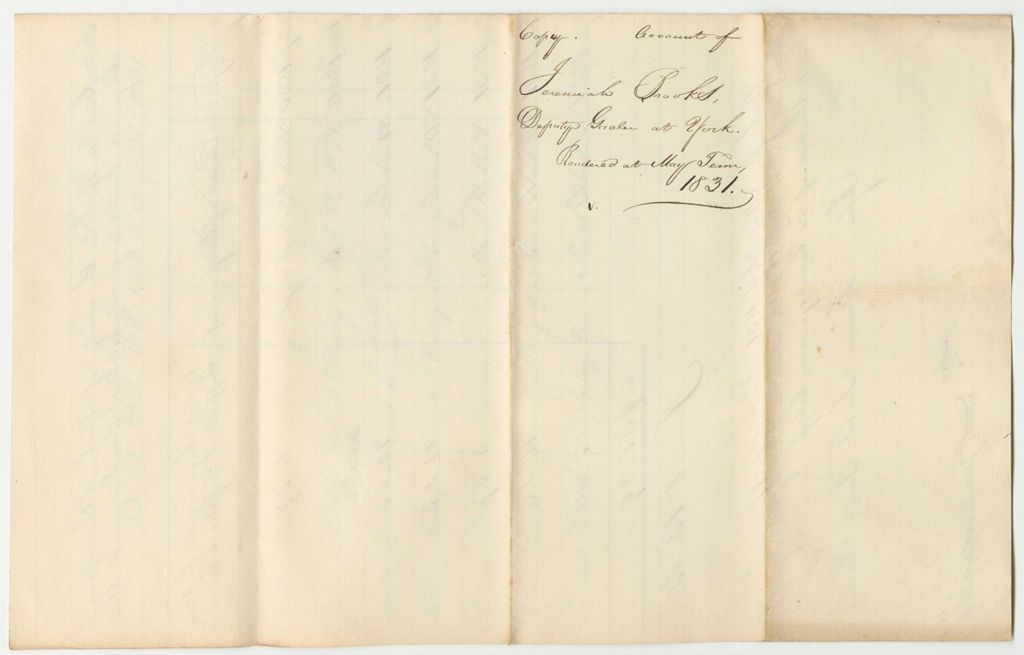 Copy. Account of
Jeremiah Brooks,
Deputy Goaler at York.
Rendered at May Term,
1831.